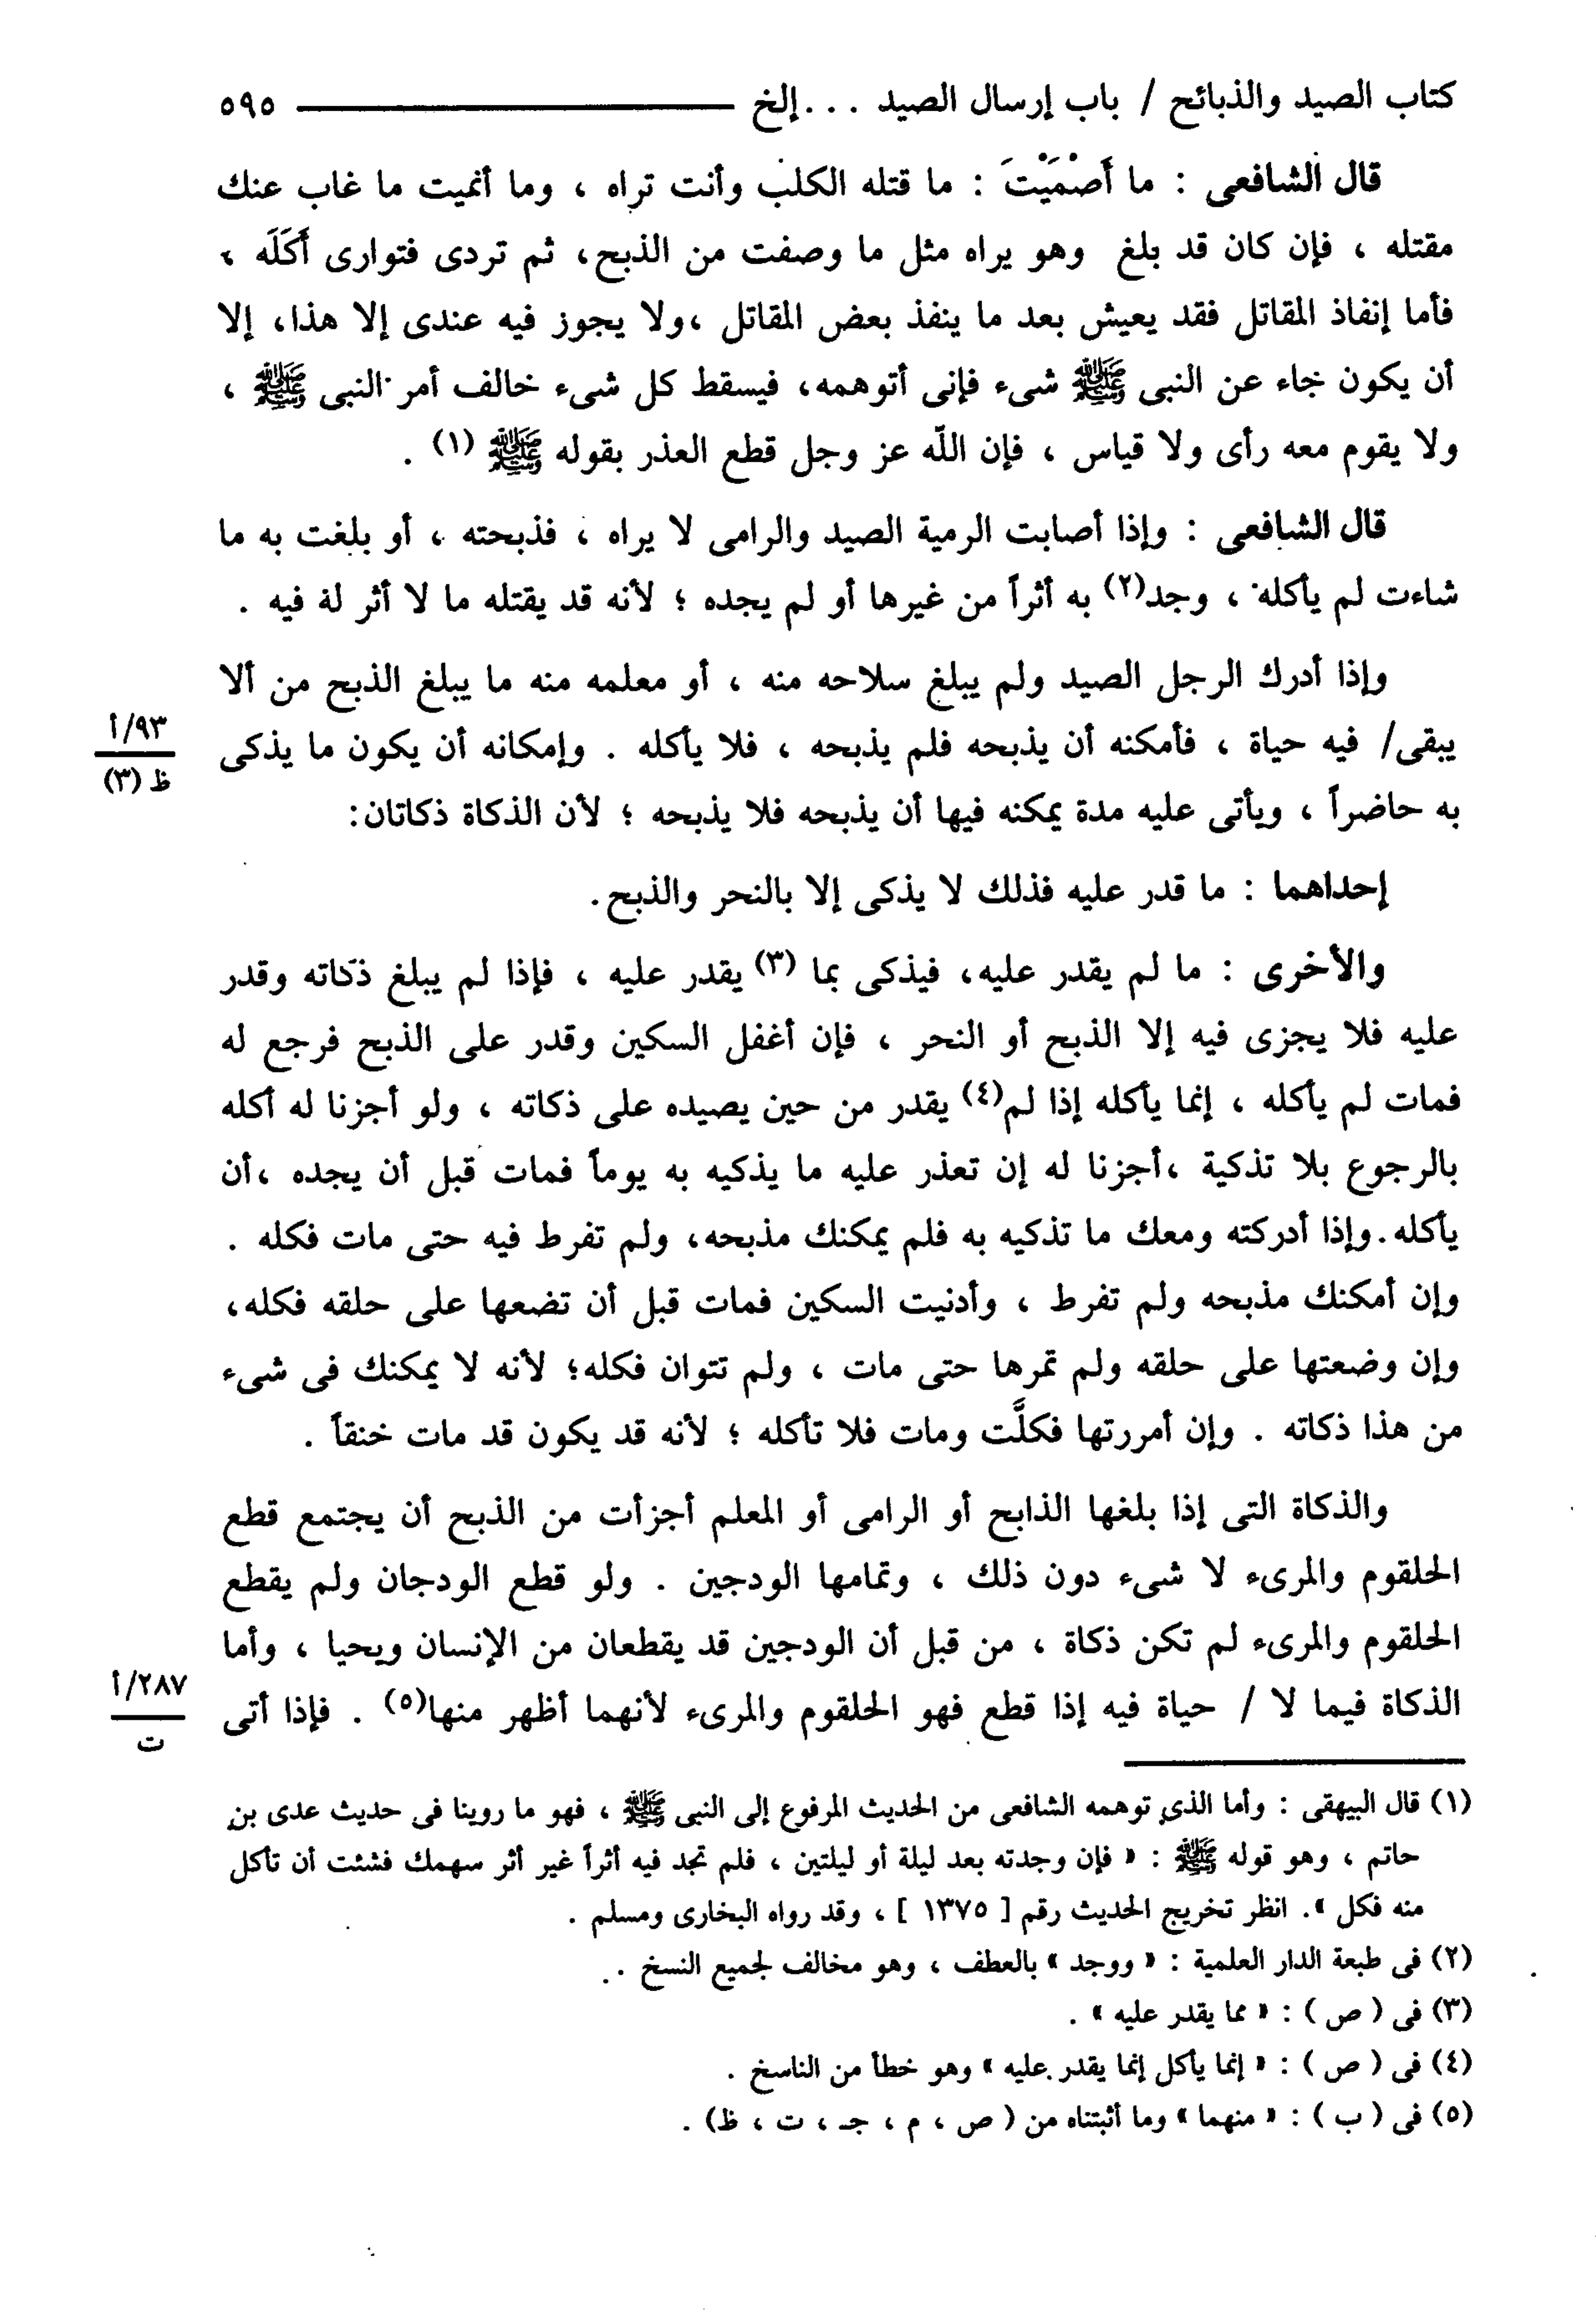 كتاب الصيد والذبائح / باب إرسال الصيد . . . إلخ ــــــــــــ ٥٩٥
قال الشافعى : ما أَصْمَيْتَ : ما قتله الكلب وأنت تراه ، وما أنميت ما غاب عنك
مقتله ، فإن كان قد بلغ وهو يراه مثل ما وصفت من الذبح، ثم تردى فتوارى أَكَلَه ،
فأما إنفاذ المقاتل فقد يعيش بعد ما ينفذ بعض المقاتل ،ولا يجوز فيه عندى إلا هذا، إلا
أن يكون جاء عن النبى ﷺ شىء فإنى أتوهمه، فيسقط كل شىء خالف أمر النبى ﷺ ،
ولا يقوم معه رأى ولا قياس ، فإن اللّه عز وجل قطع العذر بقوله ﷺ (١) .
قال الشافعى : وإذا أصابت الرمية الصيد والرامى لا يراه ، فذبحته ، أو بلغت به ما
شاءت لم يأكله ، وجد(٢) به أثراً من غيرها أو لم يجده ؛ لأنه قد يقتله ما لا أثر له فيه .
وإذا أدرك الرجل الصيد ولم يبلغ سلاحه منه ، أو معلمه منه ما يبلغ الذبح من ألا
يبقى/ فيه حياة ، فأمكنه أن يذبحه فلم يذبحه ، فلا يأكله . وإمكانه أن يكون ما يذكى
٩٣/أ
ظ (٣)
به حاضراً ، ويأتى عليه مدة يمكنه فيها أن يذبحه فلا يذبحه ؛ لأن الذكاة ذكاتان:
إحداهما : ما قدر عليه فذلك لا يذكى إلا بالنحر والذبح.
والأخرى : ما لم يقدر عليه، فيذكى بما (٣) يقدر عليه ، فإذا لم يبلغ ذكاته وقدر
عليه فلا يجزى فيه إلا الذبح أو النحر ، فإن أغفل السكين وقدر على الذبح فرجع له
فمات لم يأكله ، إنما يأكله إذا لم(٤) يقدر من حين يصيده على ذكاته ، ولو أجزنا له أكله
بالرجوع بلا تذكية ،أجزنا له إن تعذر عليه ما يذكيه به يوماً فمات قبل أن يجده ،أن
يأكله.وإذا أدركته ومعك ما تذكيه به فلم يمكنك مذبحه، ولم تفرط فيه حتى مات فكله .
وإن أمكنك مذبحه ولم تفرط ، وأدنيت السكين فمات قبل أن تضعها على حلقه فكله،
وإن وضعتها على حلقه ولم تمرها حتى مات ، ولم تتوان فكله؛ لأنه لا يمكنك فى شىء
من هذا ذكاته . وإن أمررتها فكلَّت ومات فلا تأكله ؛ لأنه قد يكون قد مات خنقاً .
والذكاة التى إذا بلغها الذابح أو الرامى أو المعلم أجزأت من الذبح أن يجتمع قطع
الحلقوم والمرىء لا شىء دون ذلك ، وتمامها الودجين . ولو قطع الودجان ولم يقطع
الحلقوم والمرىء لم تكن ذكاة ، من قبل أن الودجين قد يقطعان من الإنسان ويحيا ، وأما
الذكاة فيما لا / حياة فيه إذا قطع فهو الحلقوم والمرىء لأنهما أظهر منها(٥) . فإذا أتى
٢٨٧/أ
ت
(١) قال البيهقى : وأما الذى توهمه الشافعى من الحديث المرفوع إلى النبى ﷺ ، فهو ما روينا فى حديث عدى بن
حاتم ، وهو قوله ﷺ : « فإن وجدته بعد ليلة أو ليلتين ، فلم تجد فيه أثراً غير أثر سهمك فشئت أن تأكل
منه فكل ». انظر تخريج الحديث رقم [ ١٣٧٥ ] ، وقد رواه البخارى ومسلم .
(٢) فى طبعة الدار العلمية : « ووجد » بالعطف ، وهو مخالف لجميع النسخ .
(٣) فى ( ص ) : « مما يقدر عليه » .
(٤) فى ( ص ) : « إنما يأكل إنما يقدر عليه » وهو خطأ من الناسخ .
(٥) فى ( ب ) : « منهما » وما أثبتناه من ( ص ، م ، جـ ، ت ، ظ) .